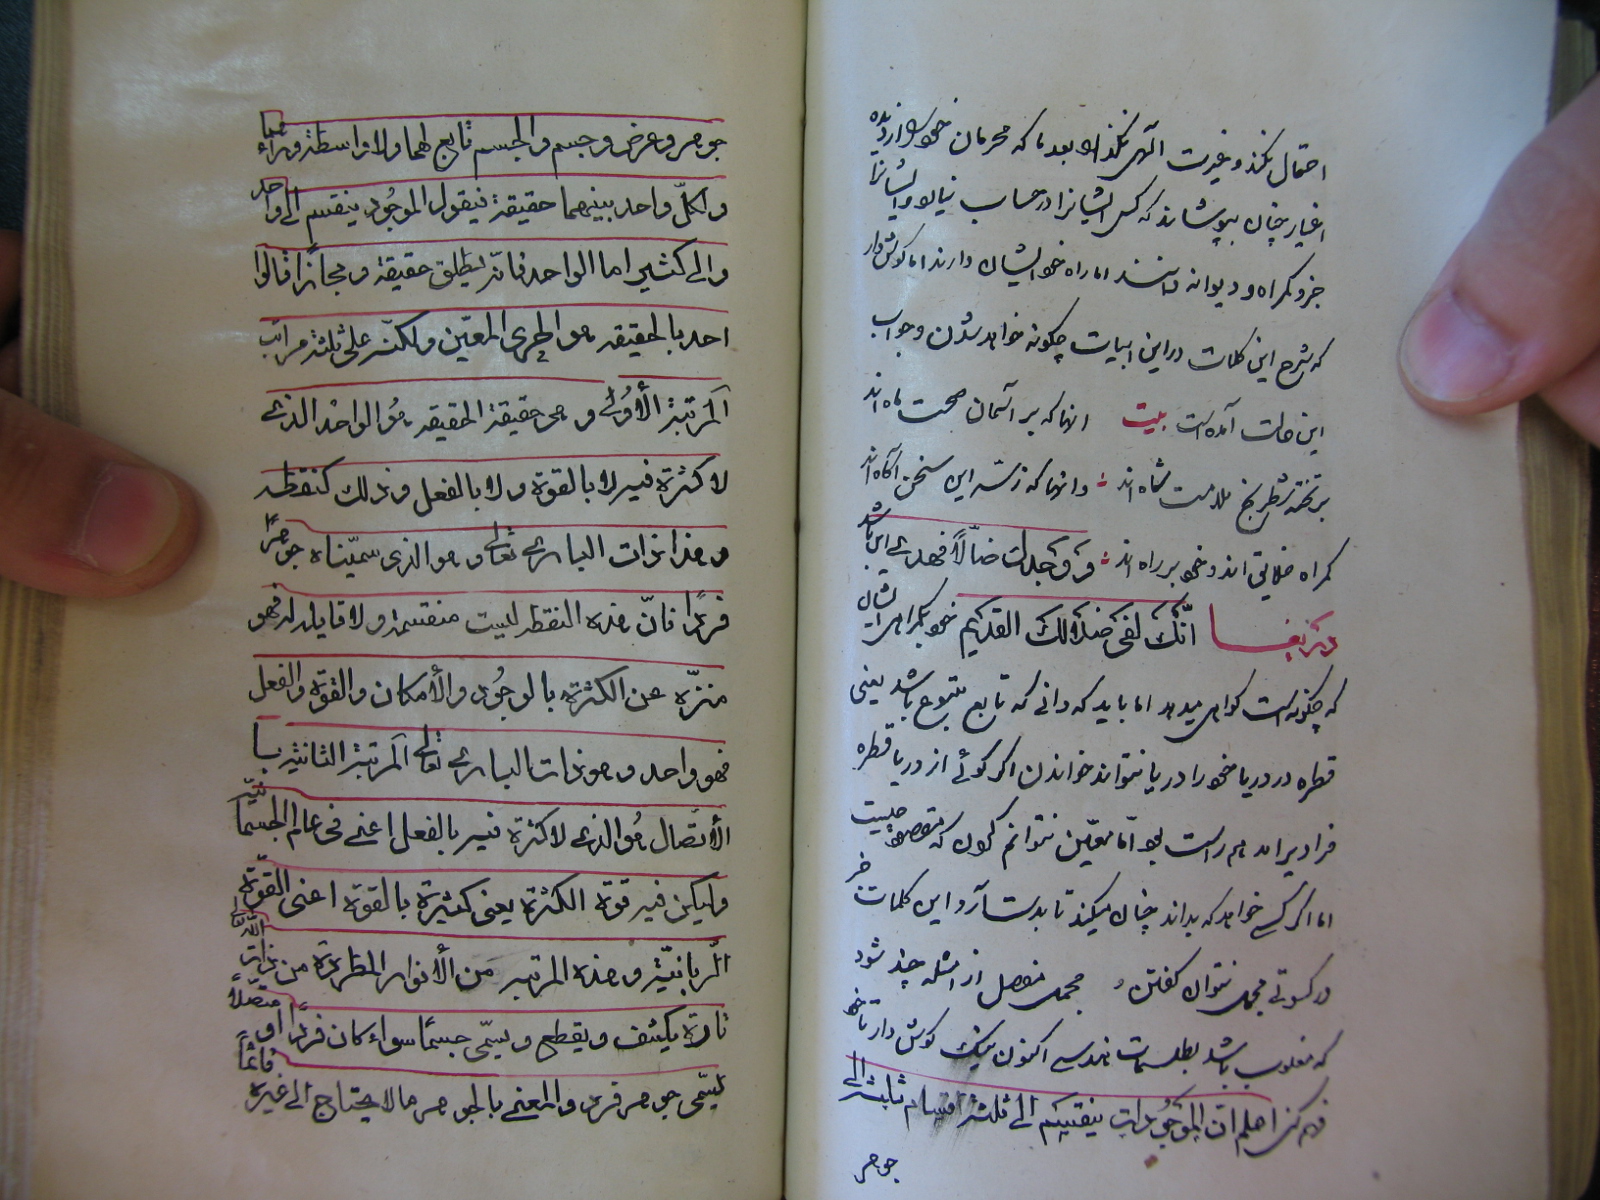 احتمال نکند و غیرت الهی نگذارد بعد ما که محرمان خود را از دیده
اغیار چنان بپوشاند که کس ایشانرا در حساب نیارد و ایشانرا
جز گمراه و دیوانه ندانند اما راه خود ایشان دارند اما گوش دار
که شرح این کلمات در این ابیات چگونه خواهد شدن و جواب
این حالت آمده است بیت انها که بر آسمان صحبت ماه اند
بر تخته شطرنج ملامت شاه اند وانها که ز سر این سخن آگاه اند
گمراه خلایق اند و خود بر راه اند و وجدک ضالا فهدی این باشد
انّک لفی ضلالک القدیم خود گمراهی ایشان
که چگونه است گواهی میدهد اما باید که دانی که تابع متبوع باشد یعنی
قطره در دریا خود را دریا نتواند خواندن اگر گوئی از دریا قطره
فرا دیر آمد هم راست بود امّا معیّن نتوانم گردن که مقصود چیست
اما اگر کسی خواهد که بداند چنان میکند تا بدست آرد این کلمات جز
در کسوتی مجمل نتوان گفتن و مجمل مفصل از امثله چند شود
که مغلوب باشد بطلسمات هندسی اکنون نیک گوش دار تا خود
فهم کنی اعلم ان الموجودات ینقسم الی ثلثة اقسام ثابتة الی
جوهر
جوهر وعرض وجسم والجسم تابع لهما ولا واسطة وراء
ولکلّ واحد بینهما حقیقة فیقول الموجود ینقسم الی واحد
والی کثیر اما الواحد فانّه یطلق حقیقة ومجازًا قالوا
احد بالحقیقه هو الجزی المعیّن ولکنّه علی ثلثة مراتب
المرتبة الأولی وهی حقیقة الحقیقه هو الواحد الذی
لا کثرة فیه لا بالقوة ولا بالفعل وذلک کنقطه
وهذا ذات الباری تعالی وهو الذی سمّیناه جوهرًا
فردًا فانّ هذه النقطه لیست منقسمة ولا قابلة له فهو
منزّه عن الکثرة بالوجود والأمکان والقوّة والفعل
فهو واحد وهو ذات الباری تعالی المرتبة الثانیة با
الأتّصال هو الذی لا کثرة فیه بالفعل اعنی فی عالم الجسمانیّة
ولیکن فیه قوة الکثرة یعنی کثیرة بالقوة اعنی القوّة
الرّبانیّة وهذه المرتبه من الأنوار المطهرة من ذات اللّه
تارة یکشف ویقطع ویسمّی جسمًا سواء کان فردًا او متصلًا
یسمّی جوهر فرد والمعنی بالجوهر ما لا یحتاج الی غیره قائمًا